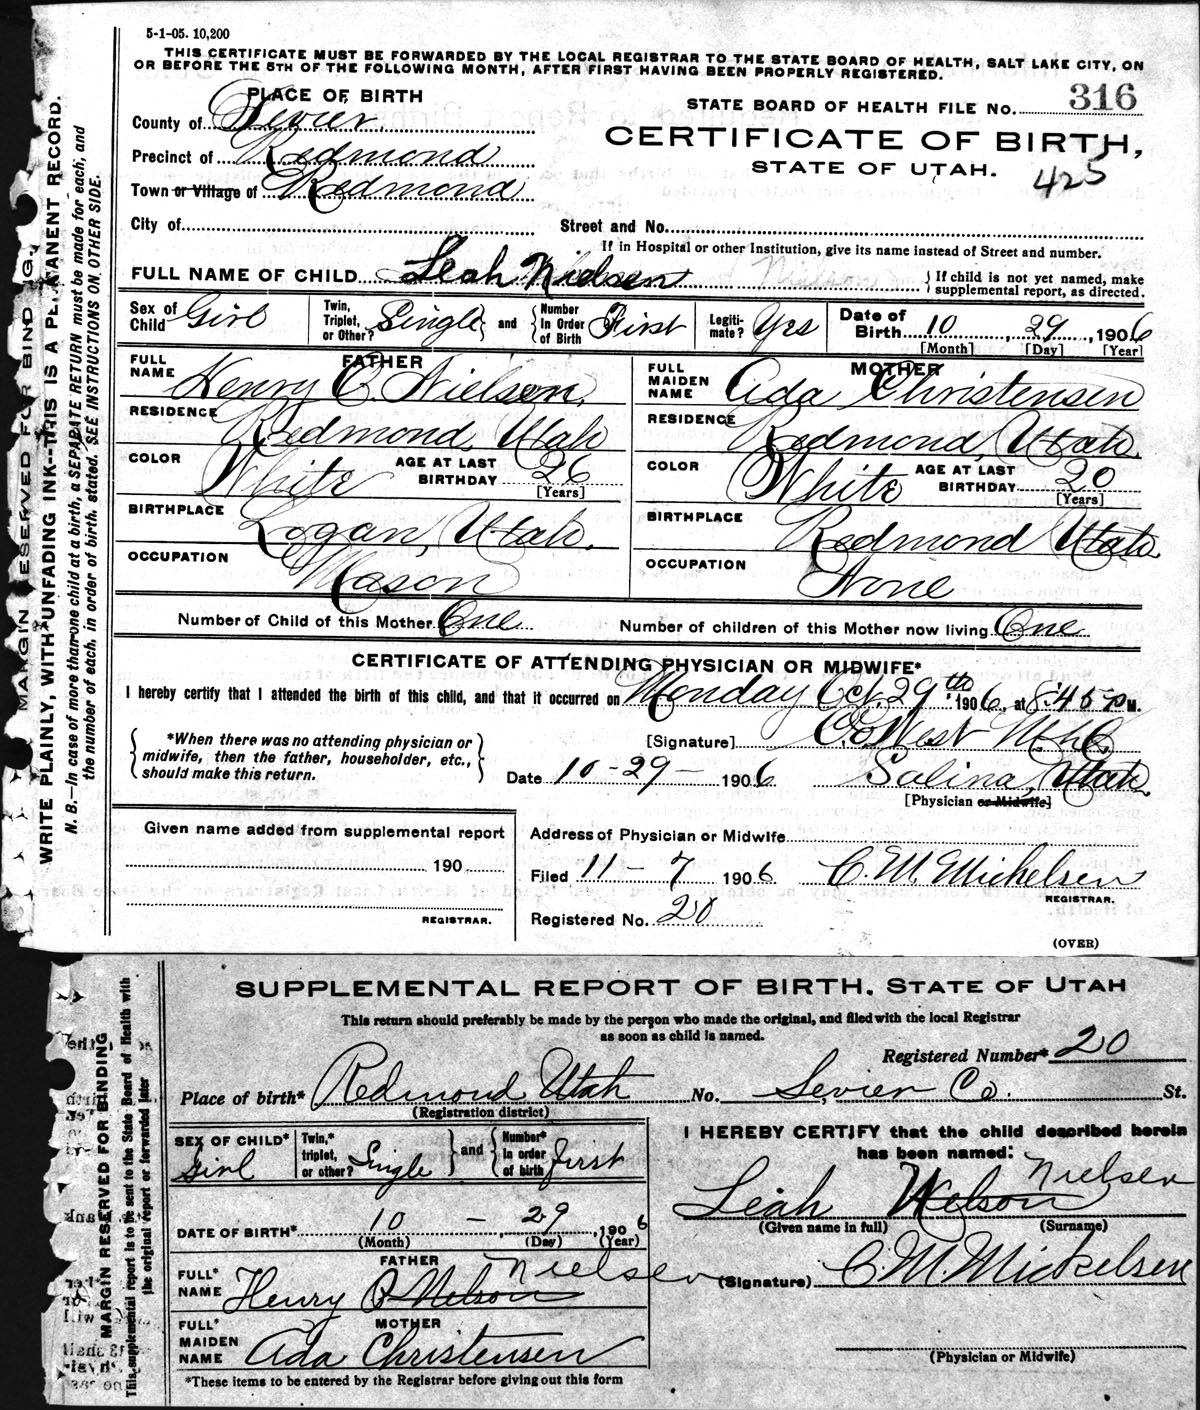 5-1-05. 10,200
THIS CERTIFICATE MUST BE FORWARDED BY THE LOCAL REGISTRAR TO THE STATE BOARD OF HEALTH, SALT LAKE CITY, ON
OR BEFORE THE 5TH OF THE FOLLOWING MONTH, AFTER FIRST HAVING BEEN PROPERLY REGISTERED.
PLACE OF BIRTH
STATE BOARD OF HEALTH FILE NO. 316
County of Sevier
CERTIFICATE OF BIRTH,
Precinct of Redmond
STATE OF UTAH.
425
Town or Village of Redmond
City of
Street and No.
If in Hospital or other Institution, give its name instead of Street and number.
FULL NAME OF CHILD Leah Nielsen
{If child is not yet named, make
supplemental report, as directed.
Sex of Child Girl
Twin, Triplet, or Other? Single} and {Number In Order of Birth First
Legiti-mate? Yes
Date of Birth 10, 29, 1906
[Month] [Day] [Year]
FATHER
FULL NAME Henry C. Nielsen
RESIDENCE Redmond, Utah
COLOR White AGE AT LAST BIRTHDAY 26
[Years]
BIRTHPLACE Logan, Utah.
OCCUPATION Mason
MOTHER
FULL MAIDEN NAME Ada Christensen
RESIDENCE Redmond, Utah.
COLOR White AGE AT LAST BIRTHDAY 20
[Years]
BIRTHPLACE Redmond Utah
OCCUPATION None
Number of Child of this Mother One Number of children of this Mother now living One
CERTIFICATE OF ATTENDING PHYSICIAN OR MIDWIFE*
I hereby certify that I attended the birth of this child, and that it occurred on Monday Oct. 29th 1906, at 8:45 P M.
{*When there was no attending physician or
midwife, then the father, householder, etc.,
should make this return.}
[Signature] West
Date 10-29- 1906 Salina, Utah
[Physician or Midwife]
Given name added from supplemental report
190
REGISTRAR.
Address of Physician or Midwife
Filed 11-7 1906 C. M. Mickelsen
REGISTRAR.
Registered No. 20
(OVER)
MARGIN RESERVED FOR BINDING.
WRITE PLAINLY, WITH UNFADING INK--THIS IS A PERMANENT RECORD.
N. B.--In case of more than one child at a birth, a SEPARATE RETURN must be made for each, and
the number of each, in order of birth, stated. SEE INSTRUCTIONS ON OTHER SIDE.
SUPPLEMENTAL REPORT OF BIRTH, STATE OF UTAH
This return should preferably be made by the person who made the original, and filed with the local Registrar
as soon as child is named.
Registered Number* 20
Place of birth* Redmond Utah No. Sevier Co. St.
(Registration district)
SEX OF CHILD* Girl
Twin,* triplet, or other? Single } and { Number* in order of birth first
DATE OF BIRTH* 10 - 29, 1906
(Month) (Day) (Year)
FATHER
FULL* NAME Henry C Nelson Nielsen
MOTHER
FULL* MAIDEN NAME Ada Christensen
*These items to be entered by the Registrar before giving out this form
I HEREBY CERTIFY that the child described herein
has been named:
Leah Nelson Nielsen
(Given name in full) (Surname)
(Signature) C. M. Mickelsen
(Physician or Midwife)
MARGIN RESERVED FOR BINDING
This supplemental report is to be sent to the State Board of Health with
the original report or forwarded later